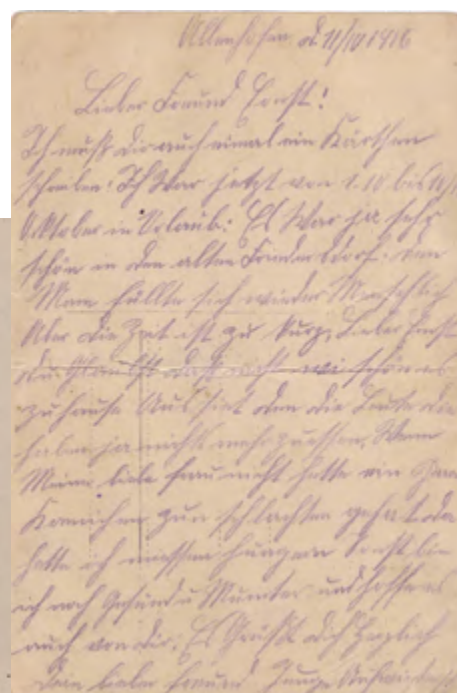 d 11/10 1916
Lieber Freund Ernst!
Ich muß dir auch einmal ein Kärtchen
schreiben. Ich War jetzt von 1.10 bis 11/
Oktober in Urlaub. Es War ja sehr
schön in den alten den
Man fühlte sich wieder Menschlich
Aber die Zeit ist zu kurz, Lieber Ernst
du Glaubst daß nicht wi schön es
zuhause Aus siet den die Leute die
haben ja nichts mehr zuessen. Wenn
Meine liebe frau nicht hette ein paar
zun schlachten gehat da
hette ich missen hungern Sonst bin
ich noch Gesund u Munter und hoffe es
auch von dir. Es Grüßt dich Herzlich
dein lieber freund